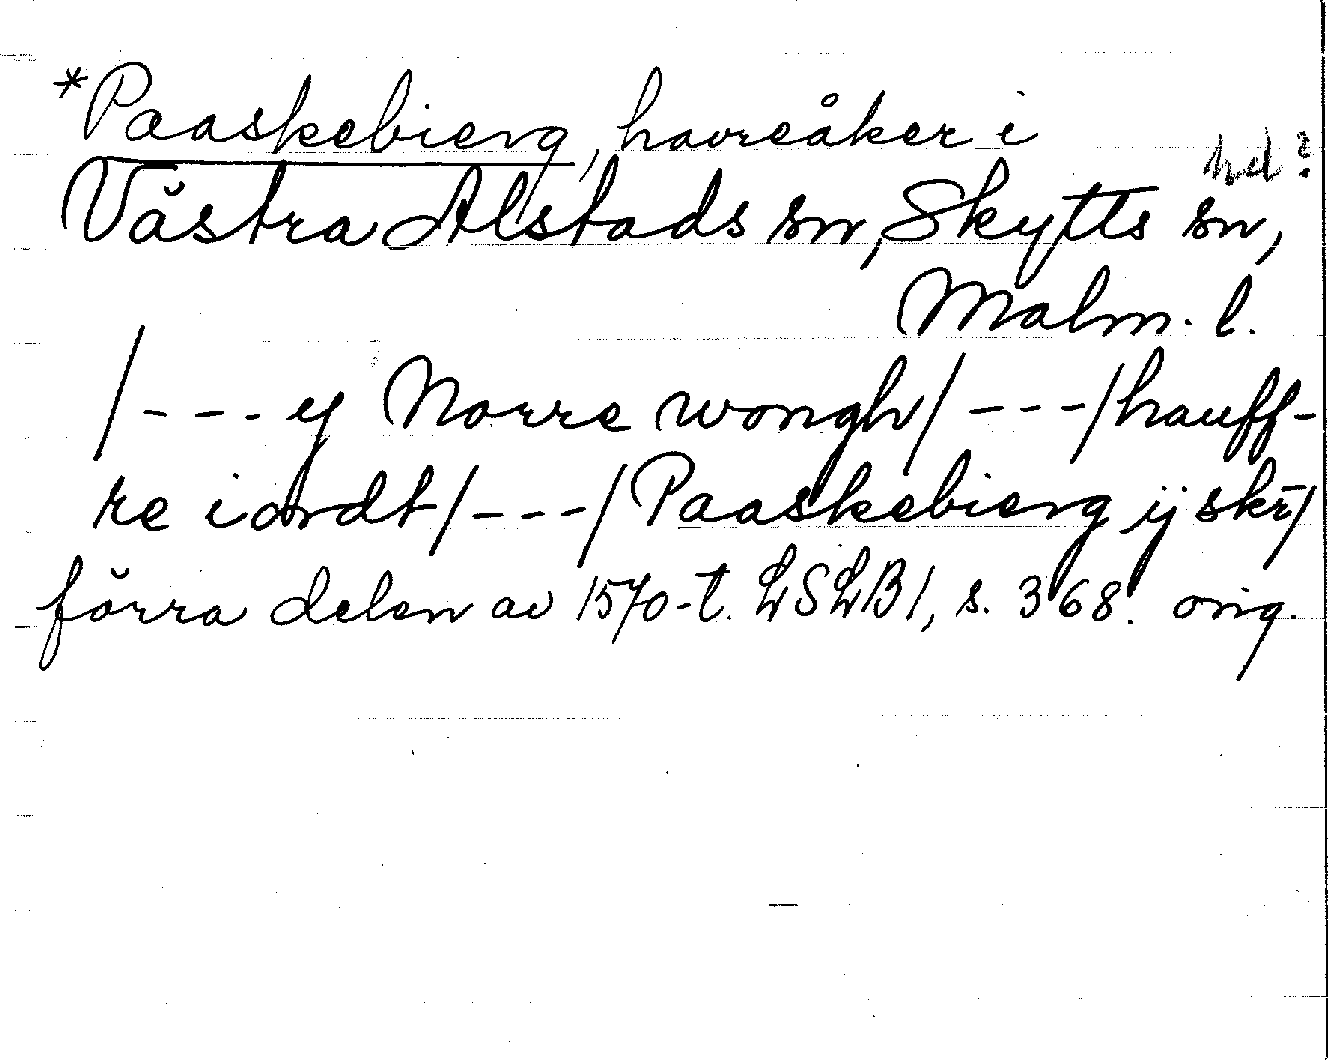 *Paaskebierg, havreåker i
hd?
Västra Alstads sn, Skytts sn,
Malm. l.
/---ij Norre wongh/---/hauff-
re iordt/---/Paaskebierg ij skr̄/
förra delen av 1570-t. LSLB1, s. 368. orig.